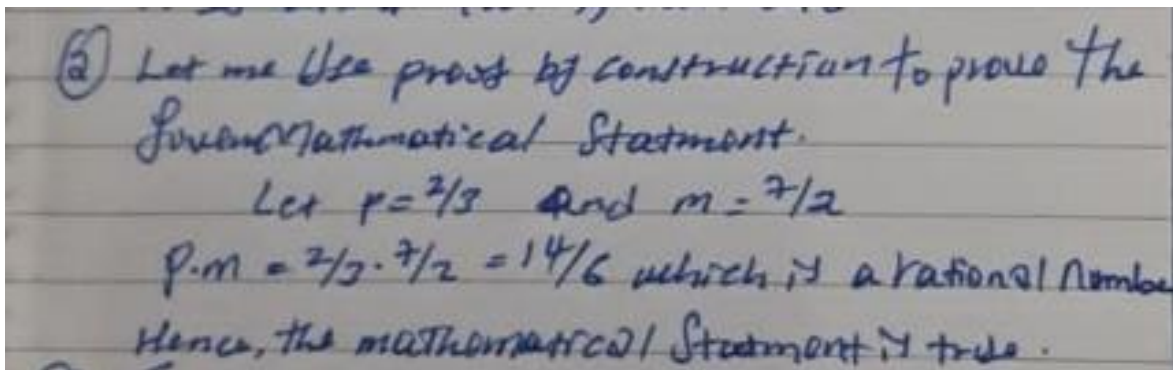 ② Let me Use proof by construction to prove the
Given Mathmatical Statment.
Let p = 2/3 and m = 7/2
P.m = 2/3 . 7/2 = 14/6 which is a rational Numbe
Hence, the mathematical Statment is true.